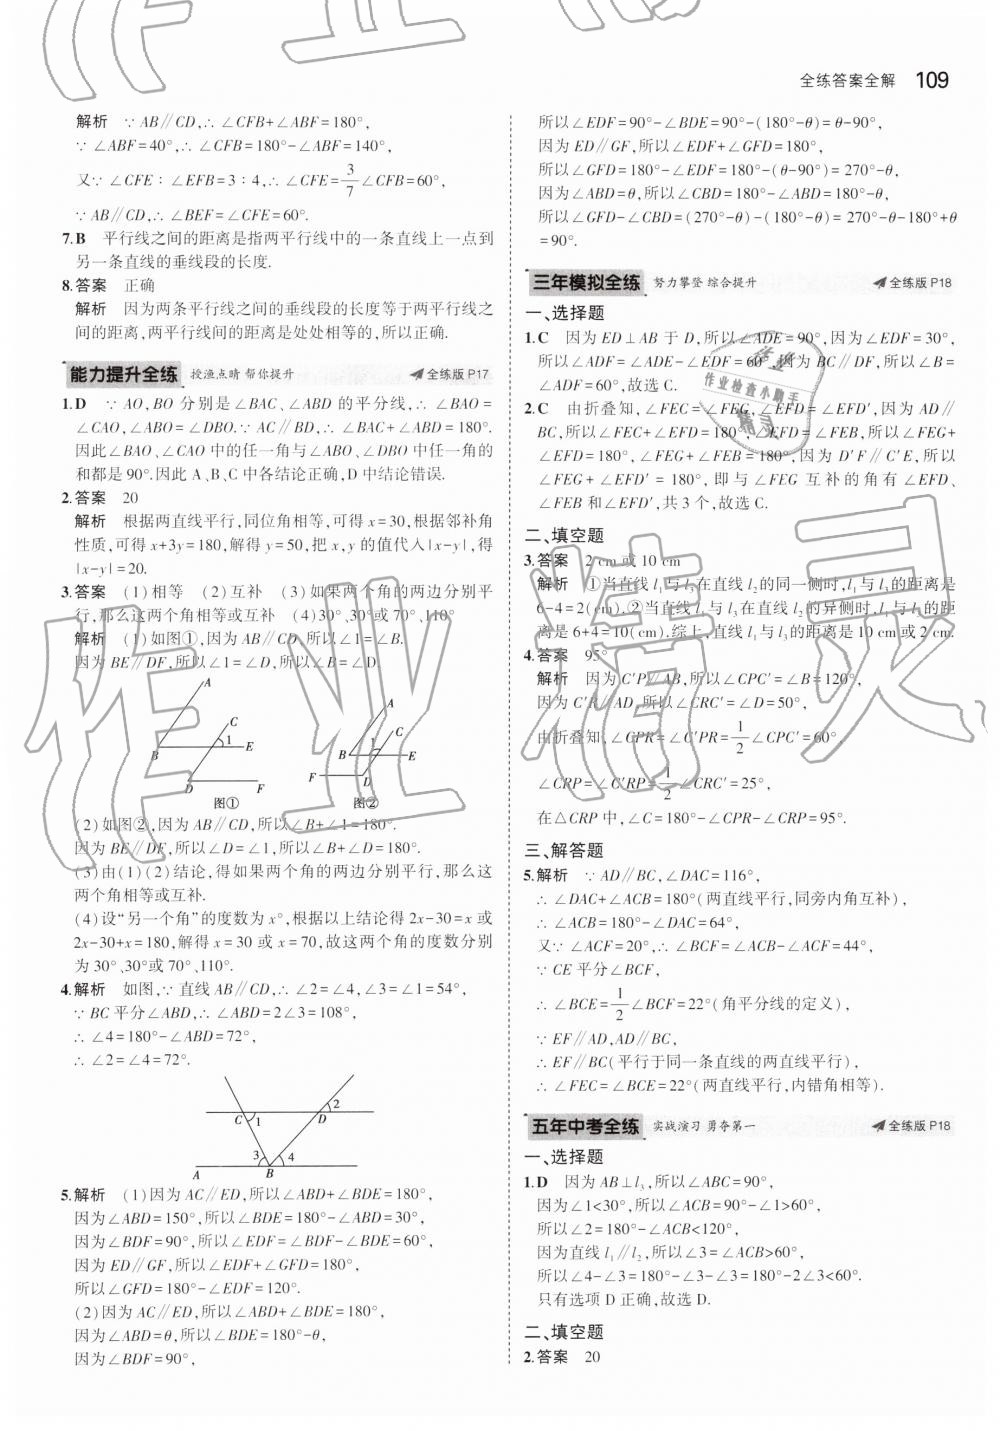 全练答案全解 109
解析 ∵AB∥CD,∴∠CFB+∠ABF=180°,
∵∠ABF=40°,∴∠CFB=180°-∠ABF=140°,
又∵∠CFE∶∠EFB=3∶4,∴∠CFE=3/7∠CFB=60°,
∵AB∥CD,∴∠BEF=∠CFE=60°.
7.B 平行线之间的距离是指两平行线中的一条直线上一点到
另一条直线的垂线段的长度.
8.答案 正确
解析 因为两条平行线之间的垂线段的长度等于两平行线之
间的距离,两平行线间的距离是处处相等的,所以正确.
能力提升全练 授渔点睛 帮你提升 全练版 P17
1.D ∵AO,BO 分别是∠BAC、∠ABD 的平分线,∴∠BAO=
∠CAO,∠ABO=∠DBO.∵AC∥BD,∴∠BAC+∠ABD=180°.
因此∠BAO、∠CAO 中的任一角与∠ABO、∠DBO 中任一角的
和都是 90°.因此 A、B、C 中各结论正确,D 中结论错误.
2.答案 20
解析 根据两直线平行,同位角相等,可得 x=30,根据邻补角
性质,可得 x+3y=180,解得 y=50,把 x,y 的值代入|x-y|,得
|x-y|=20.
3.答案 (1)相等 (2)互补 (3)如果两个角的两边分别平
行,那么这两个角相等或互补 (4)30°、30°或 70°、110°
解析 (1)如图①,因为 AB∥CD,所以∠1=∠B.
因为 BE∥DF,所以∠1=∠D,所以∠B=∠D.
A
C
1
B
E
D
F
图①
A
C
1
B
E
F
D
图②
(2)如图②,因为 AB∥CD,所以∠B+∠1=180°.
因为 BE∥DF,所以∠D=∠1,所以∠B+∠D=180°.
(3)由(1)(2)结论,得如果两个角的两边分别平行,那么这
两个角相等或互补.
(4)设“另一个角”的度数为 x°,根据以上结论得 2x-30=x 或
2x-30+x=180,解得 x=30 或 x=70,故这两个角的度数分别
为 30°、30°或 70°、110°.
4.解析 如图,∵直线 AB∥CD,∴∠2=∠4,∠3=∠1=54°,
∵BC 平分∠ABD,∴∠ABD=2∠3=108°,
∴∠4=180°-∠ABD=72°,
∴∠2=∠4=72°.
C
1
2
D
3
4
A
B
5.解析 (1)因为 AC∥ED,所以∠ABD+∠BDE=180°,
因为∠ABD=150°,所以∠BDE=180°-∠ABD=30°,
因为∠BDF=90°,所以∠EDF=∠BDF-∠BDE=60°,
因为 ED∥GF,所以∠EDF+∠GFD=180°,
所以∠GFD=180°-∠EDF=120°.
(2)因为 AC∥ED,所以∠ABD+∠BDE=180°,
因为∠ABD=θ,所以∠BDE=180°-θ,
因为∠BDF=90°,
所以∠EDF=90°-∠BDE=90°-(180°-θ)=θ-90°,
因为 ED∥GF,所以∠EDF+∠GFD=180°,
所以∠GFD=180°-∠EDF=180°-(θ-90°)=270°-θ,
因为∠ABD=θ,所以∠CBD=180°-∠ABD=180°-θ,
所以∠GFD-∠CBD=(270°-θ)-(180°-θ)=270°-θ-180°+θ
=90°.
三年模拟全练 努力攀登 综合提升 全练版 P18
一、选择题
1.C 因为 ED⊥AB 于 D,所以∠ADE=90°,因为∠EDF=30°,
所以∠ADF=∠ADE-∠EDF=60°.因为 BC∥DF,所以∠B=
∠ADF=60°,故选 C.
2.C 由折叠知,∠FEC=∠FEG,∠EFD=∠EFD′,因为 AD∥
BC,所以∠FEC+∠EFD=180°,∠EFD=∠FEB,所以∠FEG+
∠EFD=180°,∠FEG+∠FEB=180°,因为 D′F∥C′E,所以
∠FEG+∠EFD′=180°,即与∠FEG 互补的角有∠EFD、
∠FEB 和∠EFD′,共 3 个,故选 C.
二、填空题
3.答案 2 cm 或 10 cm
解析 ①当直线 l₁与 l₃在直线 l₂的同一侧时,l₁与 l₃的距离是
6-4=2(cm).②当直线 l₁与 l₃在直线 l₂的异侧时,l₁与 l₃的距
离是 6+4=10(cm).综上,直线 l₁与 l₃的距离是 10 cm 或 2 cm.
4.答案 95°
解析 因为 C′P∥AB,所以∠CPC′=∠B=120°,
因为 C′R∥AD,所以∠CRC′=∠D=50°,
由折叠知,∠CPR=∠C′PR=1/2∠CPC′=60°,
∠CRP=∠C′RP=1/2∠CRC′=25°,
在△CRP 中,∠C=180°-∠CPR-∠CRP=95°.
三、解答题
5.解析 ∵AD∥BC,∠DAC=116°,
∴∠DAC+∠ACB=180°(两直线平行,同旁内角互补),
∴∠ACB=180°-∠DAC=64°,
又∵∠ACF=20°,∴∠BCF=∠ACB-∠ACF=44°,
∵CE 平分∠BCF,
∴∠BCE=1/2∠BCF=22°(角平分线的定义),
∵EF∥AD,AD∥BC,
∴EF∥BC(平行于同一条直线的两直线平行),
∴∠FEC=∠BCE=22°(两直线平行,内错角相等).
五年中考全练 实战演习 勇夺第一 全练版 P18
一、选择题
1.D 因为 AB⊥l₃,所以∠ABC=90°,
因为∠1<30°,所以∠ACB=90°-∠1>60°,
所以∠2=180°-∠ACB<120°,
因为直线 l₁∥l₂,所以∠3=∠ACB>60°,
所以∠4-∠3=180°-∠3-∠3=180°-2∠3<60°.
只有选项 D 正确,故选 D.
二、填空题
2.答案 20
作业精灵
作业检查小助手
精灵